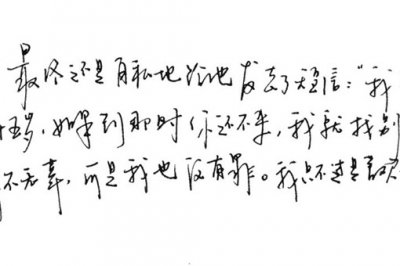 最终还是自私地给他发去了短信：“我
五岁，如果到那时你还不来，我就找别
不无辜，而是我也没有罪。我只不过是喜欢